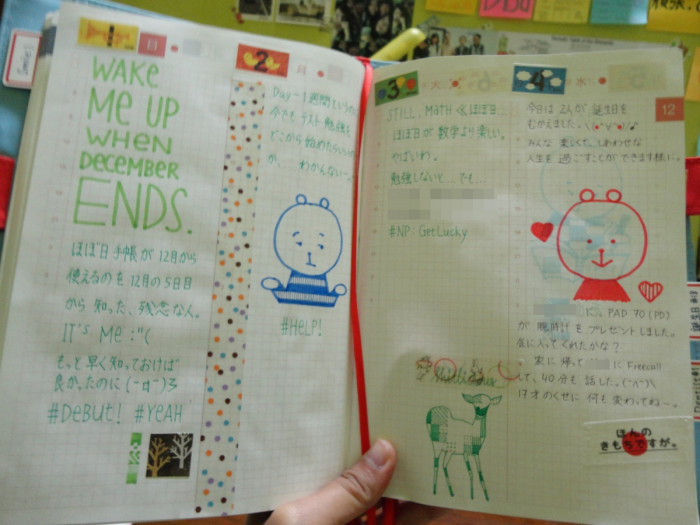 1 日
WAKE
ME UP
WHEN
DECEMBER
ENDS.
ほぼ日手帳が12月から
使えるのを12月の5日目
から知った、残念な人。
IT'S ME :"(
もっと早く知っておけば
良かったのに(-ㅍ-)3
#DeBUT! #YeAH
2 月
Day-1週間という
今でもテスト勉強を
どこから始めたらいい
か、 わかんない
#HELP!
3 火
STILL. MATH <& ほぼ日
ほぼ日が数学より楽しい。
やばいわ。
勉強しないと…でも…
#NP: GetLucky
4 水
12
今日は2人が誕生日を
むかえました。
みんな 楽しくて、しあわせな
人生を過ごすことができます様に。
に、PAD TO (PD)
が腕時計をプレゼントしました。
気に入ってくれたかな?
家に帰って に Freecall
して、40分も話した。(^^)
17才のくせに何も変わってねー。
ほんの
きもちですが。